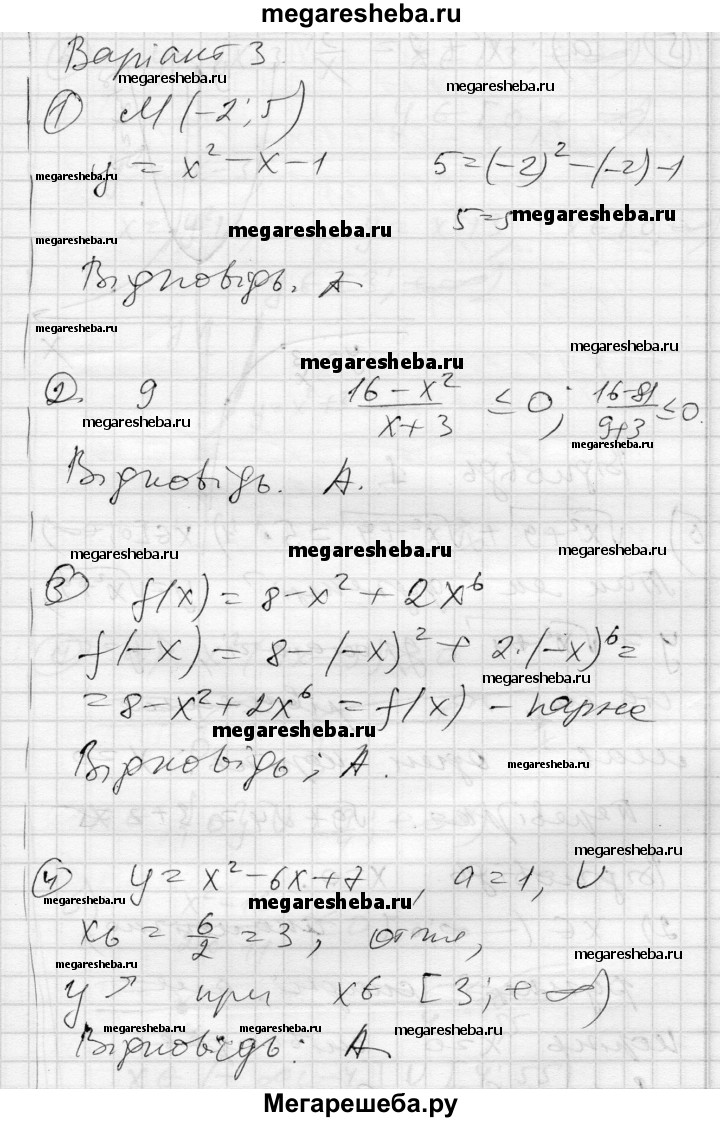 megaresheba.ru
Варіант 3
megaresheba.ru megaresheba.ru
① M(-2; 5)
megaresheba.ru
y = x² - x - 1 5 = (-2)² - (-2) - 1
megaresheba.ru
5 = 5 megaresheba.ru
megaresheba.ru
megaresheba.ru
Відповідь. А
megaresheba.ru
megaresheba.ru
megaresheba.ru
② 9 (16 - x²)/(x + 3) ≤ 0; (16-81)/(9+3) ≤ 0.
megaresheba.ru
megaresheba.ru
Відповідь. А.
megaresheba.ru
megaresheba.ru
megaresheba.ru
③ f(x) = 8 - x² + 2x⁶
f(-x) = 8 - (-x)² + 2·(-x)⁶ =
megaresheba.ru
= 8 - x² + 2x⁶ = f(x) - парне
megaresheba.ru
Відповідь; А.
megaresheba.ru
megaresheba.ru
④ y = x² - 6x + 7, a = 1, U
megaresheba.ru
xв = 6/2 = 3, отже,
megaresheba.ru
megaresheba.ru
y ↗ при x ∈ [3; +∞)
megaresheba.ru megaresheba.ru megaresheba.ru
Відповідь: А
Мегарешеба.ру